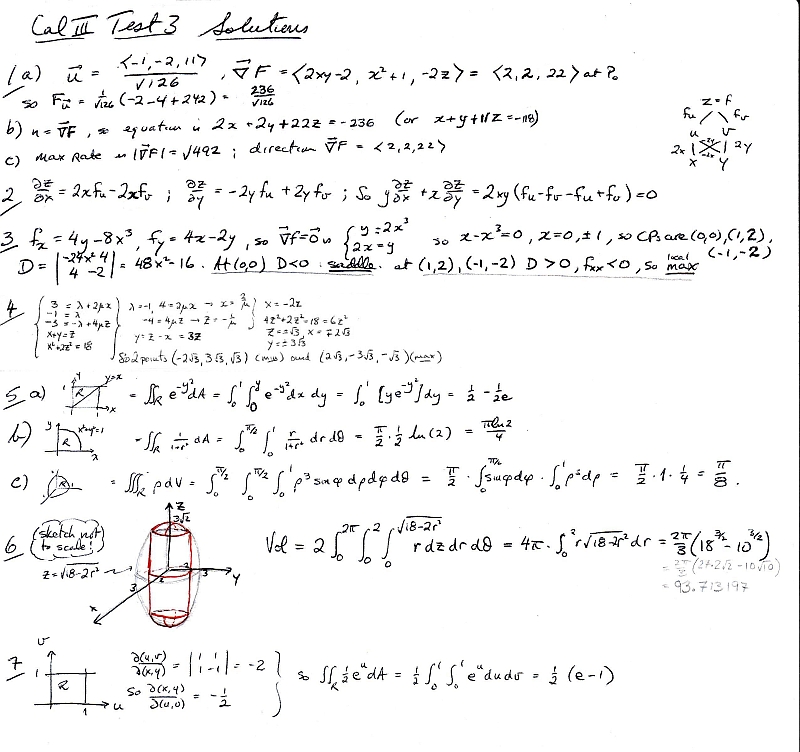 Cal III Test 3 Solutions
1a) u⃗ = <-1, -2, 11>/√126 , ∇⃗F = <2xy-2, x²+1, -2z> = <2, 2, 22> at P₀
so F_u⃗ = 1/√126 (-2-4+242) = 236/√126
b) n = ∇⃗F, so equation is 2x+2y+22z = -236 (or x+y+11z = -118)
c) Max Rate is |∇⃗F| = √492 ; direction ∇⃗F = <2,2,22>
z=f
fu fv
u v
2x 2y
x y
2 ∂z/∂x = 2xfu-2xfv ; ∂z/∂y = -2yfu+2yfv ; So y∂z/∂x + x∂z/∂y = 2xy(fu-fv-fu+fv) = 0
3 fx = 4y-8x³, fy = 4x-2y, so ∇⃗f=0⃗ is { y=2x³ 2x=y so x-x³=0, x=0,±1, so CPs are (0,0),(1,2), (-1,-2)
D = |-24x² 4 4 -2| = 48x²-16. At (0,0) D<0 saddle. at (1,2), (-1,-2) D>0, fxx<0, so local max
4 { 3 = λ+2μx
-1 = λ
-3 = -λ+4μz
x+y=z
x²+2z²=18
λ=-1, 4=2μx → x=2/μ
-4=4μz → z=-1/μ
y=z-x = 3z
x=-2z
4z²+2z²=18=6z²
z=±√3, x=∓2√3
y=±3√3
So 2 points (-2√3, 3√3, √3) (min) and (2√3, -3√3, -√3) (max)
5 a) y 1 y=x R 1 x = ∬_R e^{-y²}dA = ∫₀¹∫₀^y e^{-y²}dx dy = ∫₀¹ [ye^{-y²}]dy = 1/2 - 1/2e
b) y x²+y²=1 R x = ∬_R 1/(1+r²) dA = ∫₀^{π/2} ∫₀¹ r/(1+r²) dr dθ = π/2 · 1/2 ln(2) = πln2/4
c) = ∭_R ρ dV = ∫₀^{π/2} ∫₀^{π/2} ∫₀¹ ρ³ sinφ dρ dφ dθ = π/2 · ∫₀^{π/2} sinφ dφ · ∫₀¹ ρ³ dρ = π/2 · 1 · 1/4 = π/8 .
6 (sketch not to scale!)
z=√18-2r²
z 3√2 2 3 y 3 2 x
Vol = 2 ∫₀^{2π} ∫₀² ∫₀^{√18-2r²} r dz dr dθ = 4π · ∫₀² r√18-2r² dr = 2π/3 (18^{3/2} - 10^{3/2})
= 2π/3 (27·2√2 - 10√10)
= 93.713197
7 v 1 R 1 u
∂(u,v)/∂(x,y) = |1 1 1 -1| = -2
so ∂(x,y)/∂(u,v) = -1/2
so ∬_R 1/2 e^u dA = 1/2 ∫₀¹ ∫₀¹ e^u du dv = 1/2 (e-1)